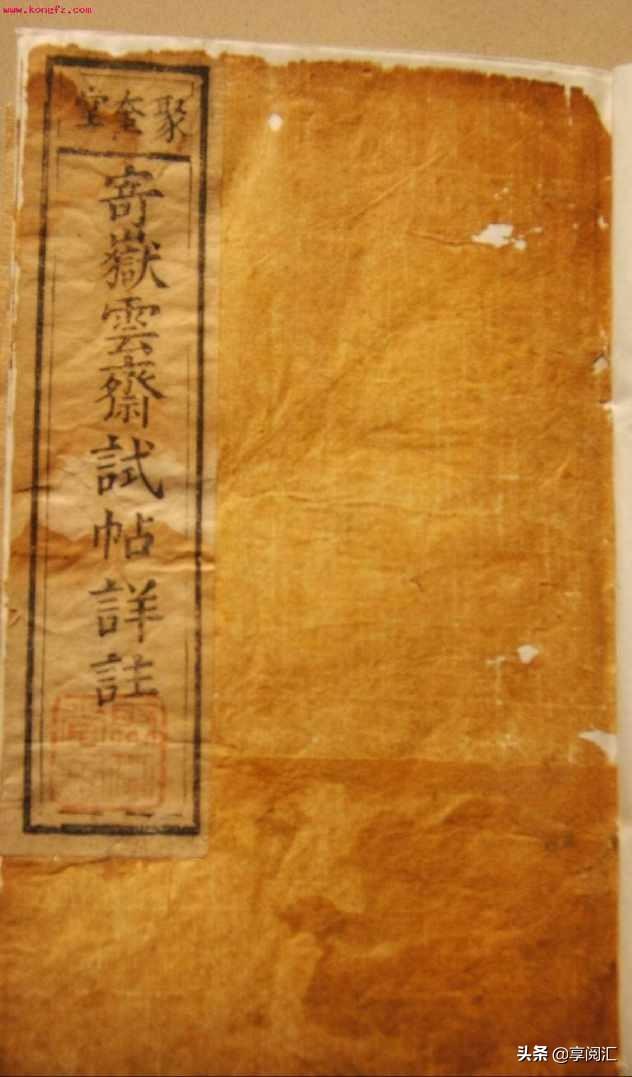 www.kongfz.com
聚奎堂
寄嶽雲齋試帖詳註
头条 @享阅汇